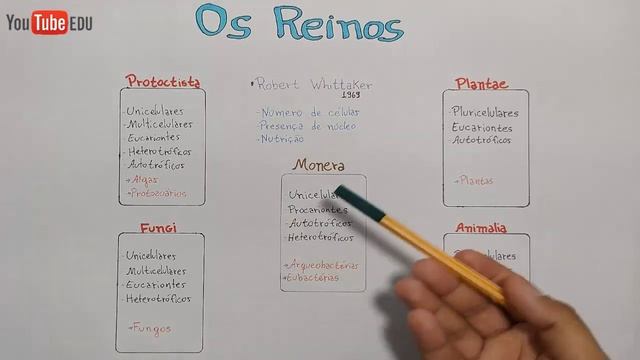 YouTube EDU
Os Reinos
Protoctista
- Unicelulares
- Multicelulares
- Eucariontes
- Heterotróficos
- Autotróficos
→ Algas
→ Protozoários
• Robert Whittaker
1969
- Número de células
- Presença de núcleo
- Nutrição
Plantae
- Pluricelulares
Eucariontes
- Autotróficos
→ Plantas
Monera
Procariontes
- Autotróficos
- Heterotróficos
→ Arqueobactérias
→ Eubactérias
Fungi
- Unicelulares
Multicelulares
- Eucariontes
- Heterotróficos
→ Fungos
Animalia